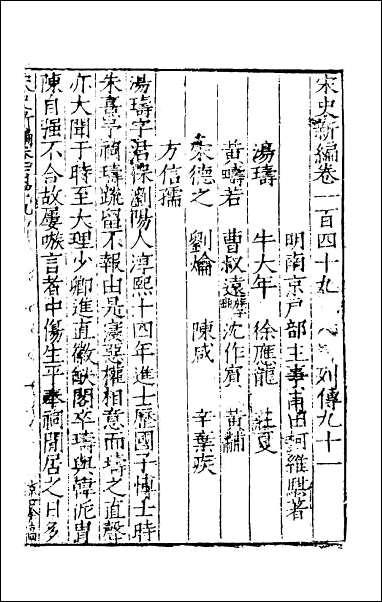 宋史新編卷一百四十九　列傳九十一
明南京戶部主事莆田柯維騏著
湯璹　牛大年　徐應龍　莊夏
黃疇若　曹叔遠　沈作賓　黃黼
宋德之　劉爚　陳咸　辛棄疾
方信孺
湯璹字君保瀏陽人淳熙十四年進士歷國子博士時
朱熹予祠璹疏留不報由是忤權相意而璹之直聲
亦大聞于時至大理少卿進直徽猷閣卒璹與韓侂胄
陳自强不合故屢嗾言者中傷生平奉祠閒居之日多